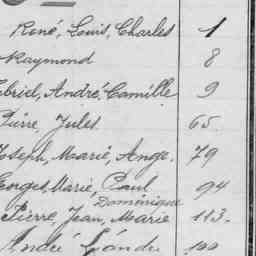 René, Louis, Charles 1
Raymond 8
Gabriel, André, Camille 9
Pierre, Jules. 65.
Joseph, Marie, Ange. 79
Georges, Marie, Paul 94
Dominique
Pierre, Jean, Marie 113.
André